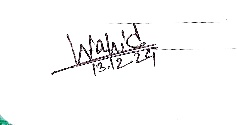 Wahid
13.12.24